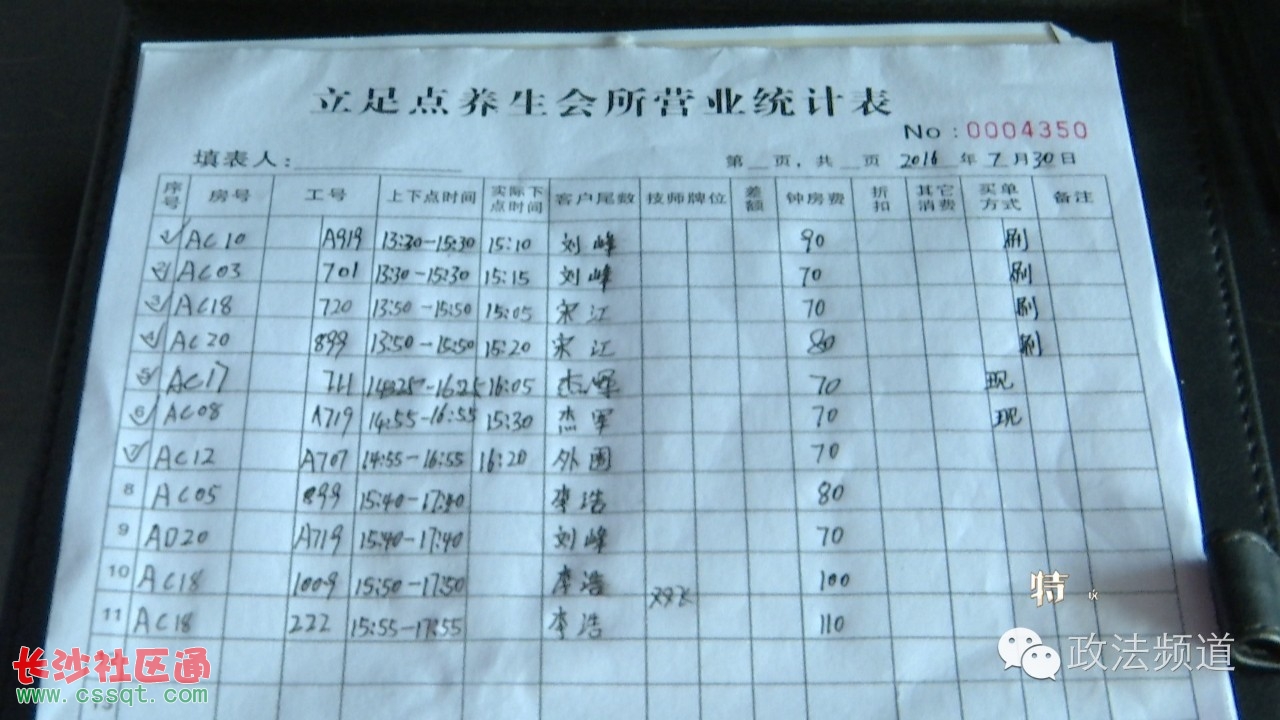 立足点养生会所营业统计表
No：0004350
填表人： 第 页，共 页 2016 年 7 月 30 日
序号 房号 工号 上下点时间 实际下点时间 客户尾数 技师牌位 差额 钟房费 折扣 其它消费 买单方式 备注
1 AC10 A919 13:30-15:30 15:10 刘峰 90 刷
2 AC03 701 13:30-15:30 15:15 刘峰 70 刷
3 AC18 720 13:50-15:50 15:05 宋江 70 刷
4 AC20 899 13:50-15:50 15:20 宋江 80 刷
5 AC17 711 14:25-16:25 16:05 杰军 70 现
6 AC08 A719 14:55-16:55 15:30 杰军 70 现
7 AC12 A707 14:55-16:55 16:20 外围 70
8 AC05 899 15:40-17:40 李浩 80
9 AD20 A719 15:40-17:40 刘峰 70
10 AC18 1009 15:50-17:50 李浩 100
11 AC18 222 15:55-17:55 李浩 110
特
政法频道
长沙社区通
www.cssqt.com